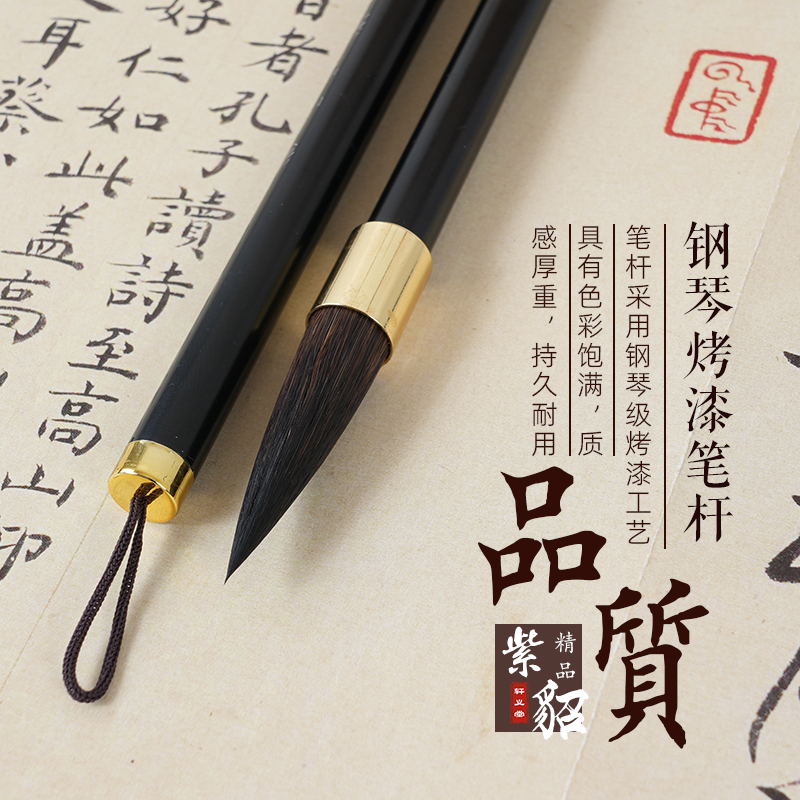 钢琴烤漆笔杆
笔杆采用钢琴级烤漆工艺
具有色彩饱满，质
感厚重，持久耐用
品質
精品
紫貂
轩义堂
者孔子讀詩至高山
好仁如此蓋高
耳蔡